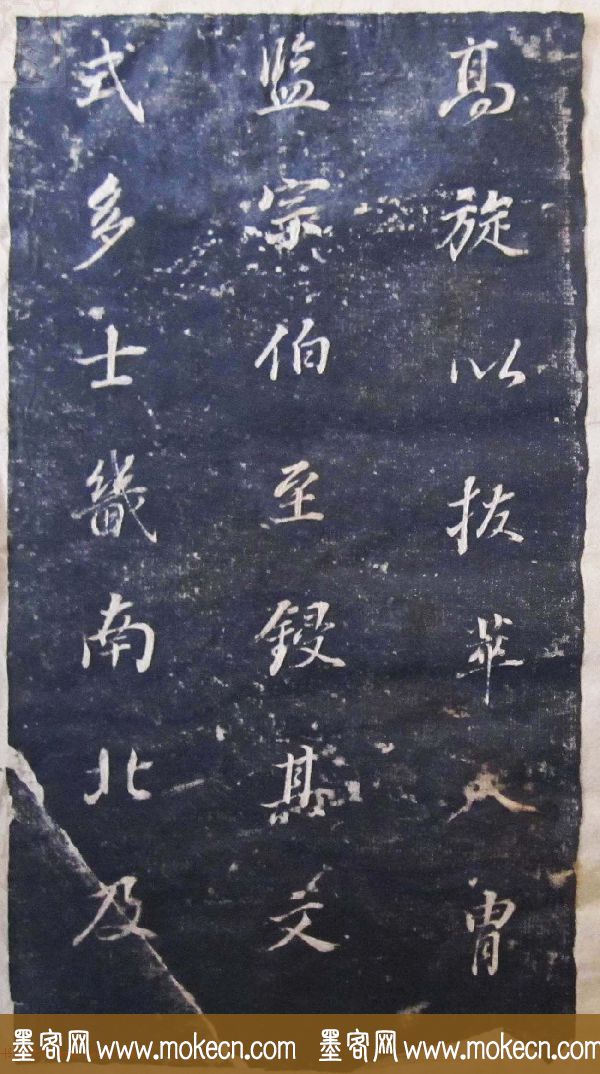 高旋以拔萃入胄
监宗伯至鋟其文
式多士畿南北及
墨客网www.mokecn.com 墨客网www.mokecn.com